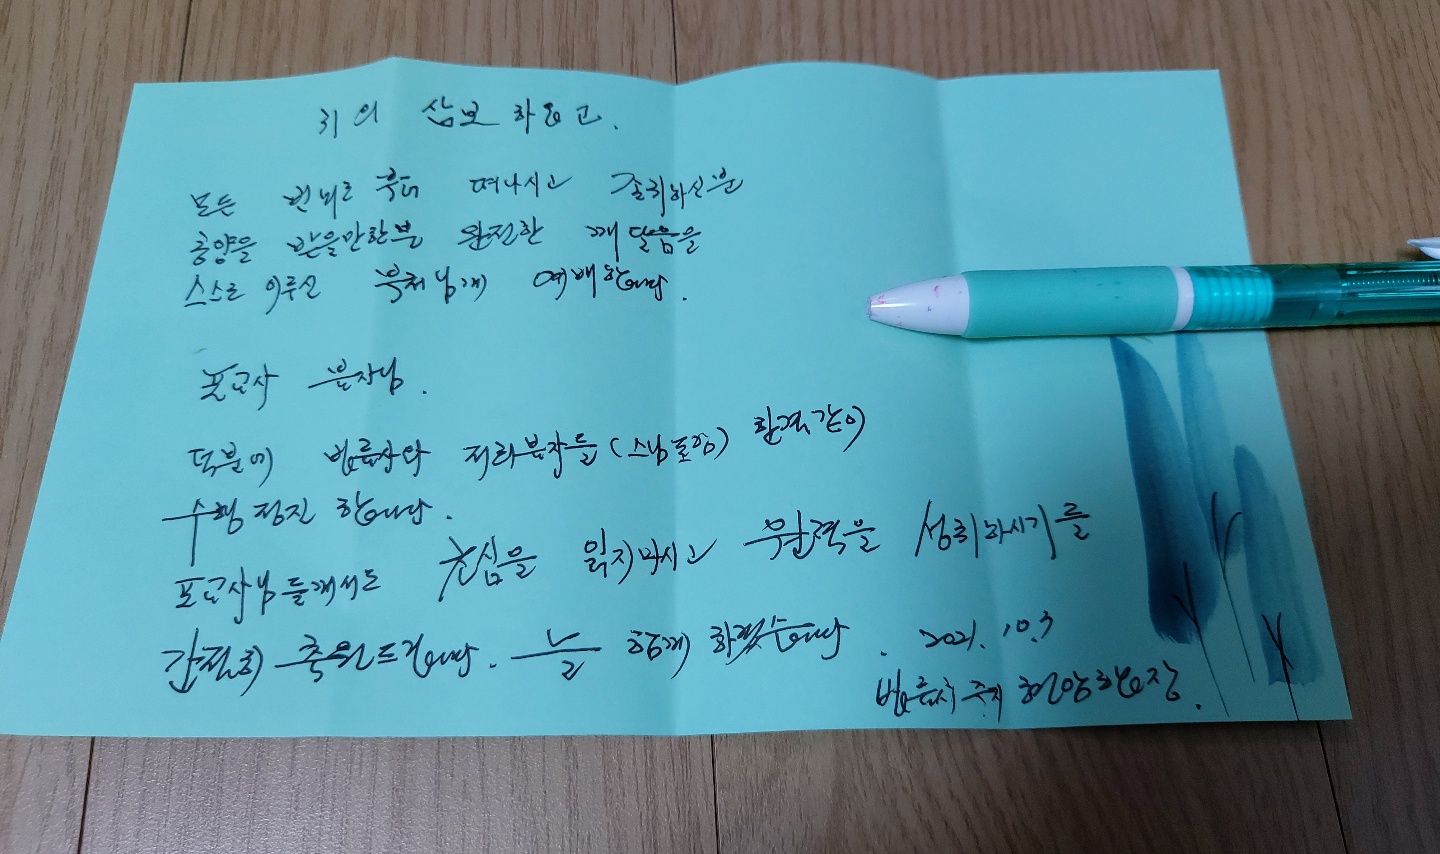 귀의 삼보 하옵고.
모든 번뇌로 부터 떠나시고 존귀하신분
공양을 받을만한분 완전한 깨달음을
스스로 이루신 부처님께 예배합니다.
포교사 분자님.
덕분에 법륭사와 저희
수행 정진 합니다.
포교사님들께서도 초심을 잃지마시고 원력을 성취하시기를
간절히 축원드립니다. 늘 함께 하겠습니다. 2021. 10. 3
주지 합장.